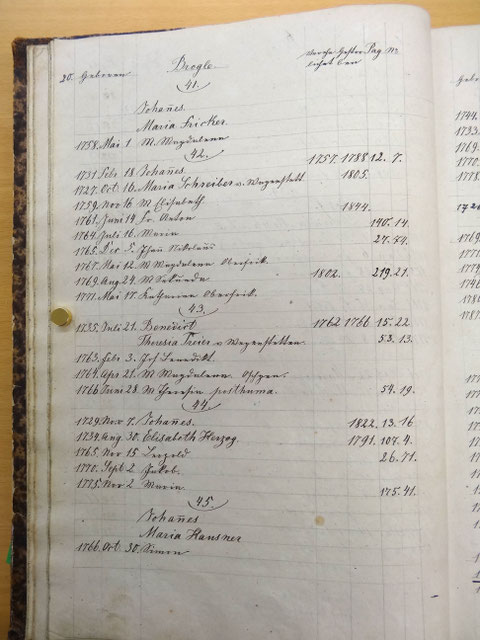 20. Geboren Brogle. Pag. Nr.
41.
Johan̄es.
Maria Fricker.
1758. Mai 1 M. Magdalena
42.
1731. Febr 18 Johan̄es. 1757. 1788 12. 7.
1727. Oct. 16. Maria Schreiber v. Wegenstett. 1805.
1759. Nov 16 M Elisabeth. 1844.
1763. Juni 14 Fr. Anton 140. 14.
1764. Juli 16. Maria 27. 84.
1765. Dez 5.
1767. Mai 12. M Magdalena
1769. Aug 24. M Sekunda 1802. 219. 21.
1771. Mai 17. Katharina
43.
1735. Juli 21. Benedict 1762 1766 15. 22
Theresia Treier v Wegenstetten. 53. 13.
1763. Febr 3. Jos Benedikt.
1764. Apr 21. M Magdalena
1766 Juni 28. M Theresia posthuma. 54. 19.
44
1729. Nov 7. Johan̄es. 1822. 13. 16.
1734. Aug. 30. Elisabeth Herzog. 1791. 107. 4.
1765. Nov 15 Leopold 26. 71.
1770. Sept 2 Jakob.
1775. Nov 2 Maria 175. 41.
45.
Johan̄es
Maria Hausner
1766. Oct. 30. Simon